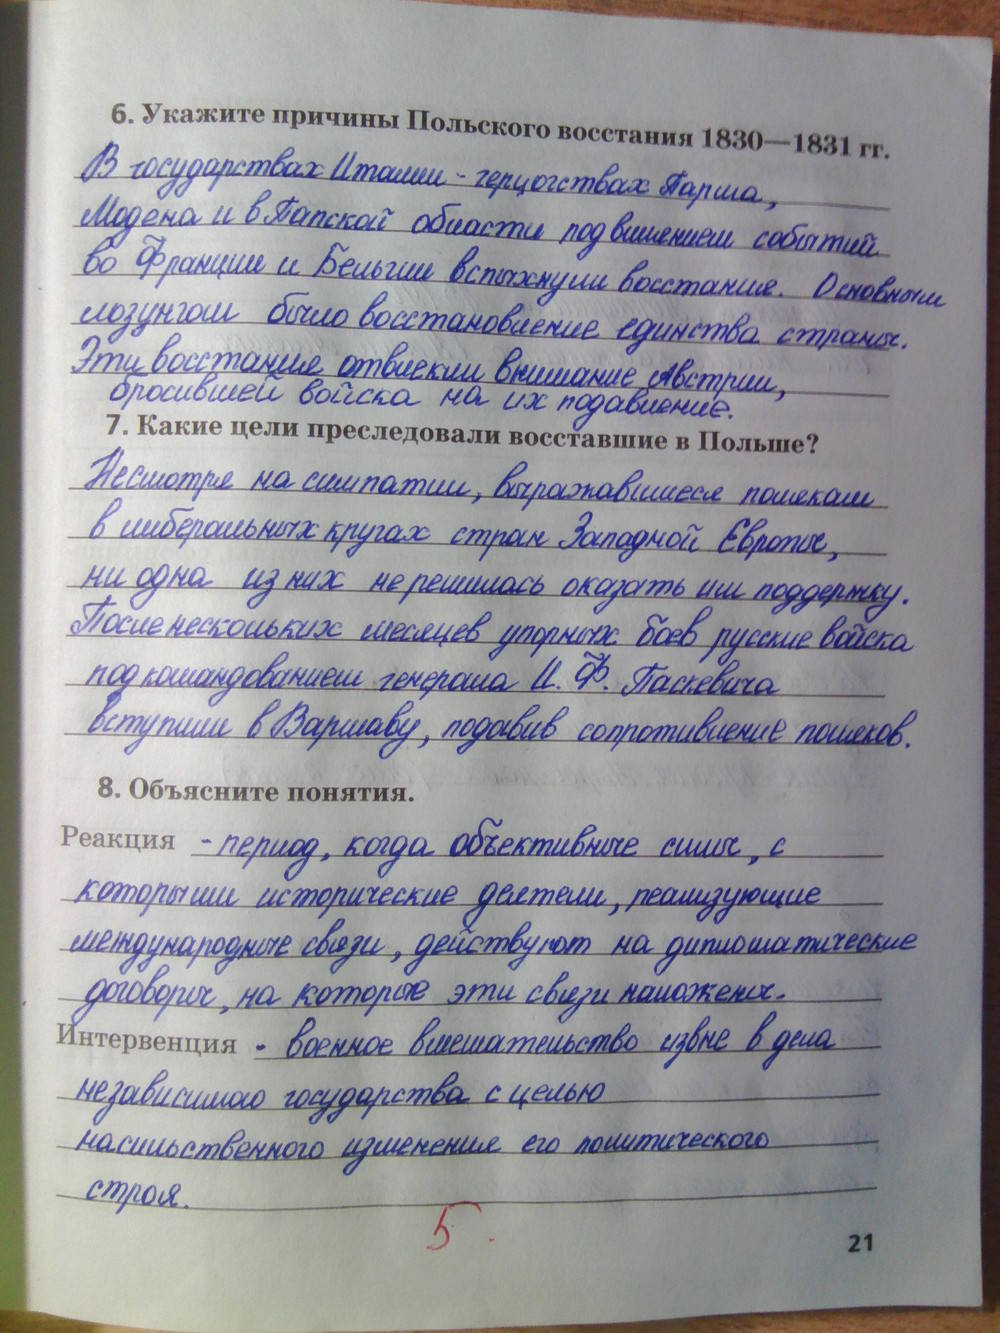 6. Укажите причины Польского восстания 1830—1831 гг.
В государствах Италии - герцогствах Парма,
Модена и в Папской области под влиянием событий
во Франции и Бельгии вспыхнули восстания. Основным
лозунгом было восстановление единства страны.
Эти восстания отвлекли внимание Австрии,
бросившей войска на их подавление.
7. Какие цели преследовали восставшие в Польше?
Несмотря на симпатии, выражавшиеся полякам
в либеральных кругах стран Западной Европы,
ни одна из них не решилась оказать им поддержку.
После нескольких месяцев упорных боев русские войска
под командованием генерала И. Ф. Паскевича
вступили в Варшаву, подавив сопротивление поляков.
8. Объясните понятия.
Реакция - период, когда объективные силы, с
которыми исторические деятели, реализующие
международные связи, действуют на дипломатические
договоры, на которые эти связи наложены.
Интервенция - военное вмешательство извне в дела
независимого государства с целью
насильственного изменения его политического
строя.
5
21